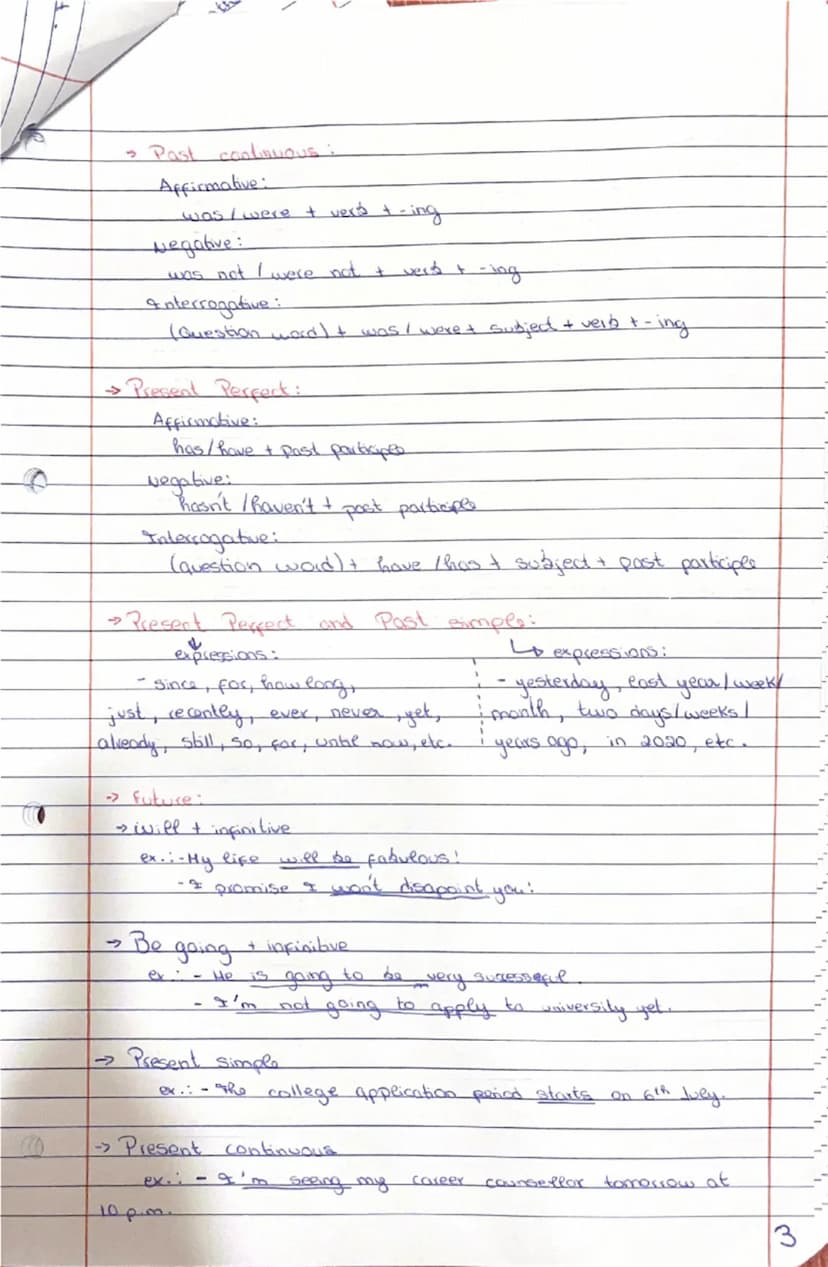 → Past continuous:
Affirmative:
was / were + verb + -ing
Negative:
was not / were not + verb + -ing
Interrogative:
(Question word) + was / were + subject + verb + -ing
→ Present Perfect:
Affirmative:
has/have + past participle
Negative:
hasn't / haven't + past participle
Interrogative:
(question word) + have / has + subject + past participle
→ Present Perfect and Past simple:
expressions:
- since, for, how long,
just, recently, ever, never, yet,
already, still, so, far, until now, etc.
↳ expressions:
- yesterday, last year/week/
month, two days/weeks/
years ago, in 2020, etc.
→ Future:
→ will + infinitive
ex.: - My life will be fabulous!
- I promise I won't disapoint you!
→ Be going + infinitive
ex.: - He is going to be very sucessful.
- I'm not going to apply to university yet.
→ Present simple
ex.: - The college application period starts on 6th July.
→ Present continuous
ex.: - I'm seeing my career counsellor tomorrow at
10 p.m.
3